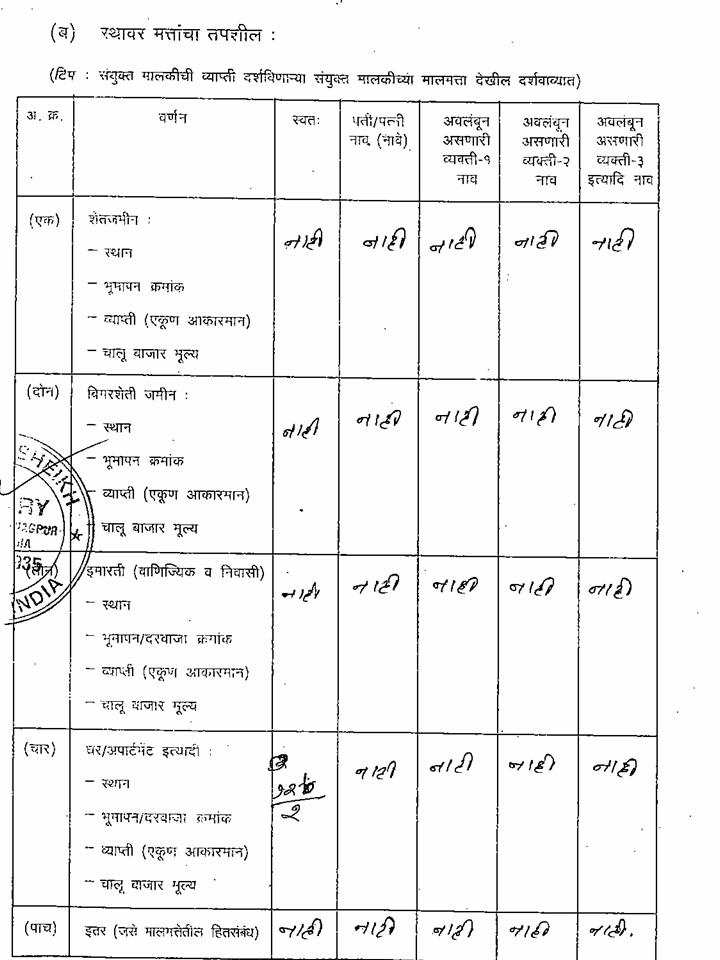 (ब) स्थावर मत्तांचा तपशील :
(टिप : संयुक्त मालकीची व्याप्ती दर्शविणाऱ्या संयुक्त मालकीच्या मालमत्ता देखील दर्शवाव्यात)
अ. क्र. वर्णन स्वतः पती/पत्नी नाव (नावे) अवलंबून असणारी व्यक्ती-१ नाव अवलंबून असणारी व्यक्ती-२ नाव अवलंबून असणारी व्यक्ती-३ इत्यादि नाव
(एक) शेतजमीन : नाही नाही नाही नाही नाही
– स्थान
– भूमापन क्रमांक
– व्याप्ती (एकूण आकारमान)
– चालू बाजार मूल्य
(दोन) बिगरशेती जमीन : नाही नाही नाही नाही नाही
– स्थान
– भूमापन क्रमांक
– व्याप्ती (एकूण आकारमान)
– चालू बाजार मूल्य
SHEIKH
INDIA
(तीन) इमारती (वाणिज्यिक व निवासी) नाही नाही नाही नाही नाही
– स्थान
– भूमापन/दरवाजा क्रमांक
– व्याप्ती (एकूण आकारमान)
– चालू बाजार मूल्य
(चार) घर/अपार्टमेंट इत्यादी : नाही नाही नाही नाही
– स्थान
– भूमापन/दरवाजा क्रमांक
– व्याप्ती (एकूण आकारमान)
– चालू बाजार मूल्य
(पाच) इतर (जसे मालमत्तेतील हितसंबंध) नाही नाही नाही नाही नाही.